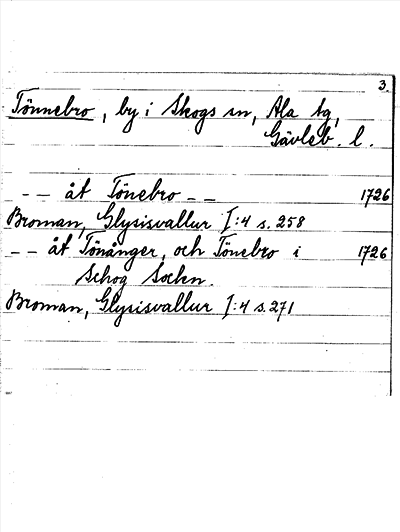 3.
Tönnebro, by i Skogs sn, Ala tg,
Gävleb. l.
– – åt Tönebro – – 1726
Broman, Glysisvallur I:4 s. 258
– – åt Tönånger, och Tönebro i 1726
Schog Sochn.
Broman, Glysisvallur I:4 s. 271